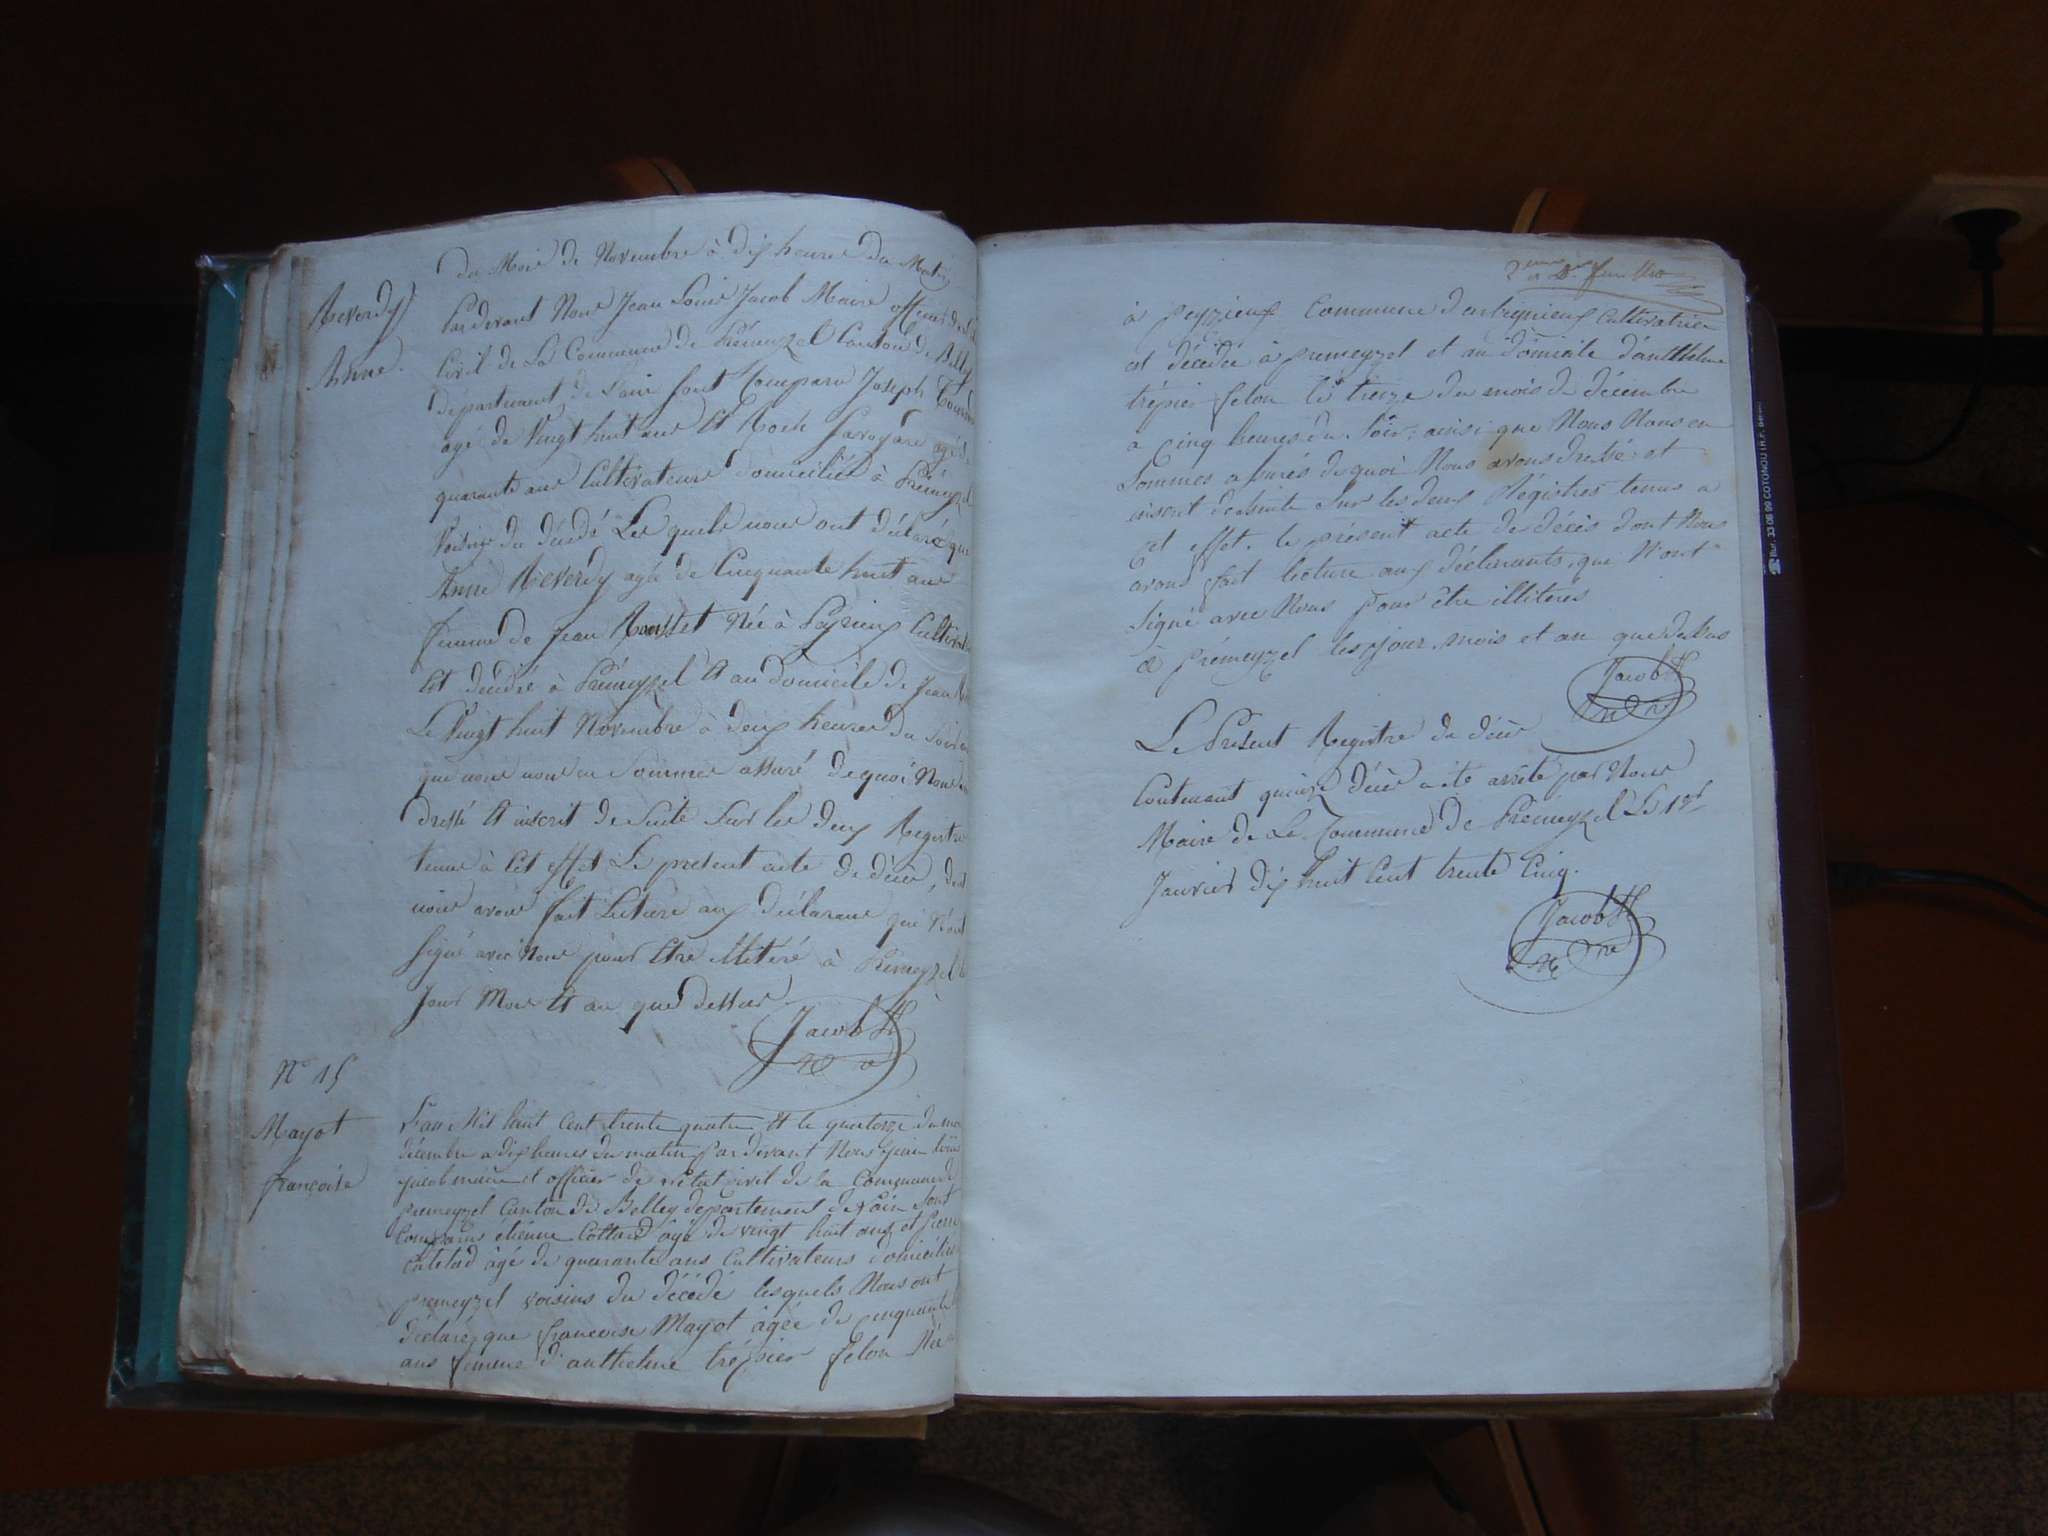 du Mois de Novembre à dix heures du Matin
Reverdy
Anne.
Pardevant Nous Jean Louis Jacob Maire officier de
Civil de La Commune de Prémeyzel Canton de Belley
département de l'ain sont Comparu Joseph
agé de Vingt huit ans Et Roch Savoyard agé de
quarante ans Cultivateurs domiciliés à Prémeyzel
Voisins du décédé Les quels nous ont déclaré que
Anne Reverdy agée de Cinquante huit ans
femme de Jean Née à Peyzieux
Est décédée à Prémeyzel Et au domicile de Jean
Le Vingt huit Novembre à deux heures du Soir
que nous nous en Sommes assuré de quoi Nous
dressé Et inscrit de Suite Sur les deux Registres
tenus à Cet effet Le présent acte de décès, dont
nous avons fait Lecture aux déclarans qui N'ont
Signé avec Nous pour Etre illitéré à Prémeyzel
Jour Mois Et an que dessus
Jacob
N° 15
Mayot
françoise
L'an Mil huit Cent trente quatre Et le quatorze du mois
décembre a dix heures du matin pardevant Nous jean louis
jacob maire et officier de l'état civil de la Commune de
premeyzel Canton de Belley département de l'ain Sont
Comparus étienne Cottard âgé de vingt huit ans et pierre
âgé de quarante ans Cultivateurs domiciliés
premeyzel voisins du décédé lesquels Nous ont
déclaré, que françoise Mayot âgée de cinquante
ans femme d'anthelme trépier felon Née
à peyzieux Commune d'arbignieux Cultivatrice
est décédée à premeyzel et au domicile d'anthelme
trépier felon le treize du mois de décembre
a Cinq heures du Soir; ainsi que Nous Nous en
Sommes assurés de quoi Nous avons dressé et
inscrit de suite Sur les deux Régistres tenus a
Cet effet. le présent acte de décès dont Nous
avons fait lecture aux déclarants, qui N'ont
Signé avec Nous pour être illiteres
à prémeyzel les jour, mois et an que dessus
Jacob
Le Présent Registre de décès
Contenant quinze décès a été arrêté par Nous
Maire de La Commune de Prémeyzel Le 1er
Janvier dix huit Cent trente Cinq.
Jacob